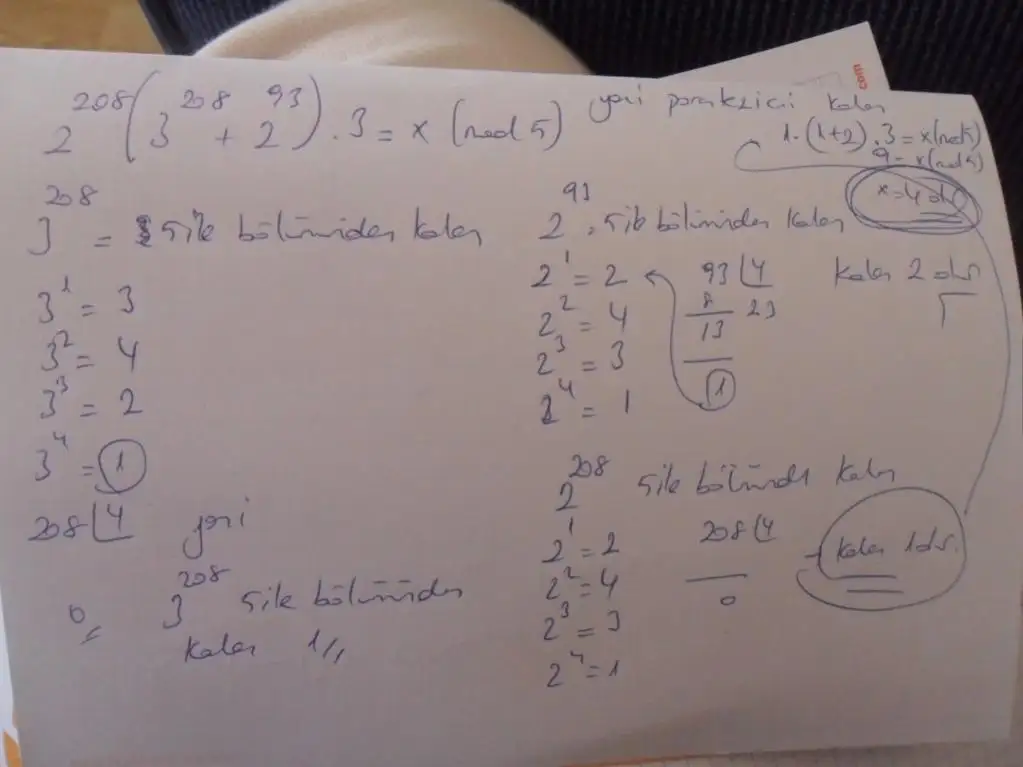 2^208 (3^208 + 2^93) . 3 = x (mod 5) yani
kalan
1.(1+2).3 = x(mod5)
9 = x(mod5)
x=4 olur
3^208 = 5 ile bölümünden kalan
3^1 = 3
3^2 = 4
3^3 = 2
3^4 = 1
208 | 4
0
yani
3^208 5ile bölümünden
kalan 1//
2^93 . 5ile bölümünden kalan
2^1 = 2
2^2 = 4
2^3 = 3
2^4 = 1
93 | 4
8 23
13
1
kalan 2 olur
2^208 5ile bölümünde kalan
2^1 = 2
2^2 = 4
2^3 = 3
2^4 = 1
208 | 4
0
kalan 1dir.
com